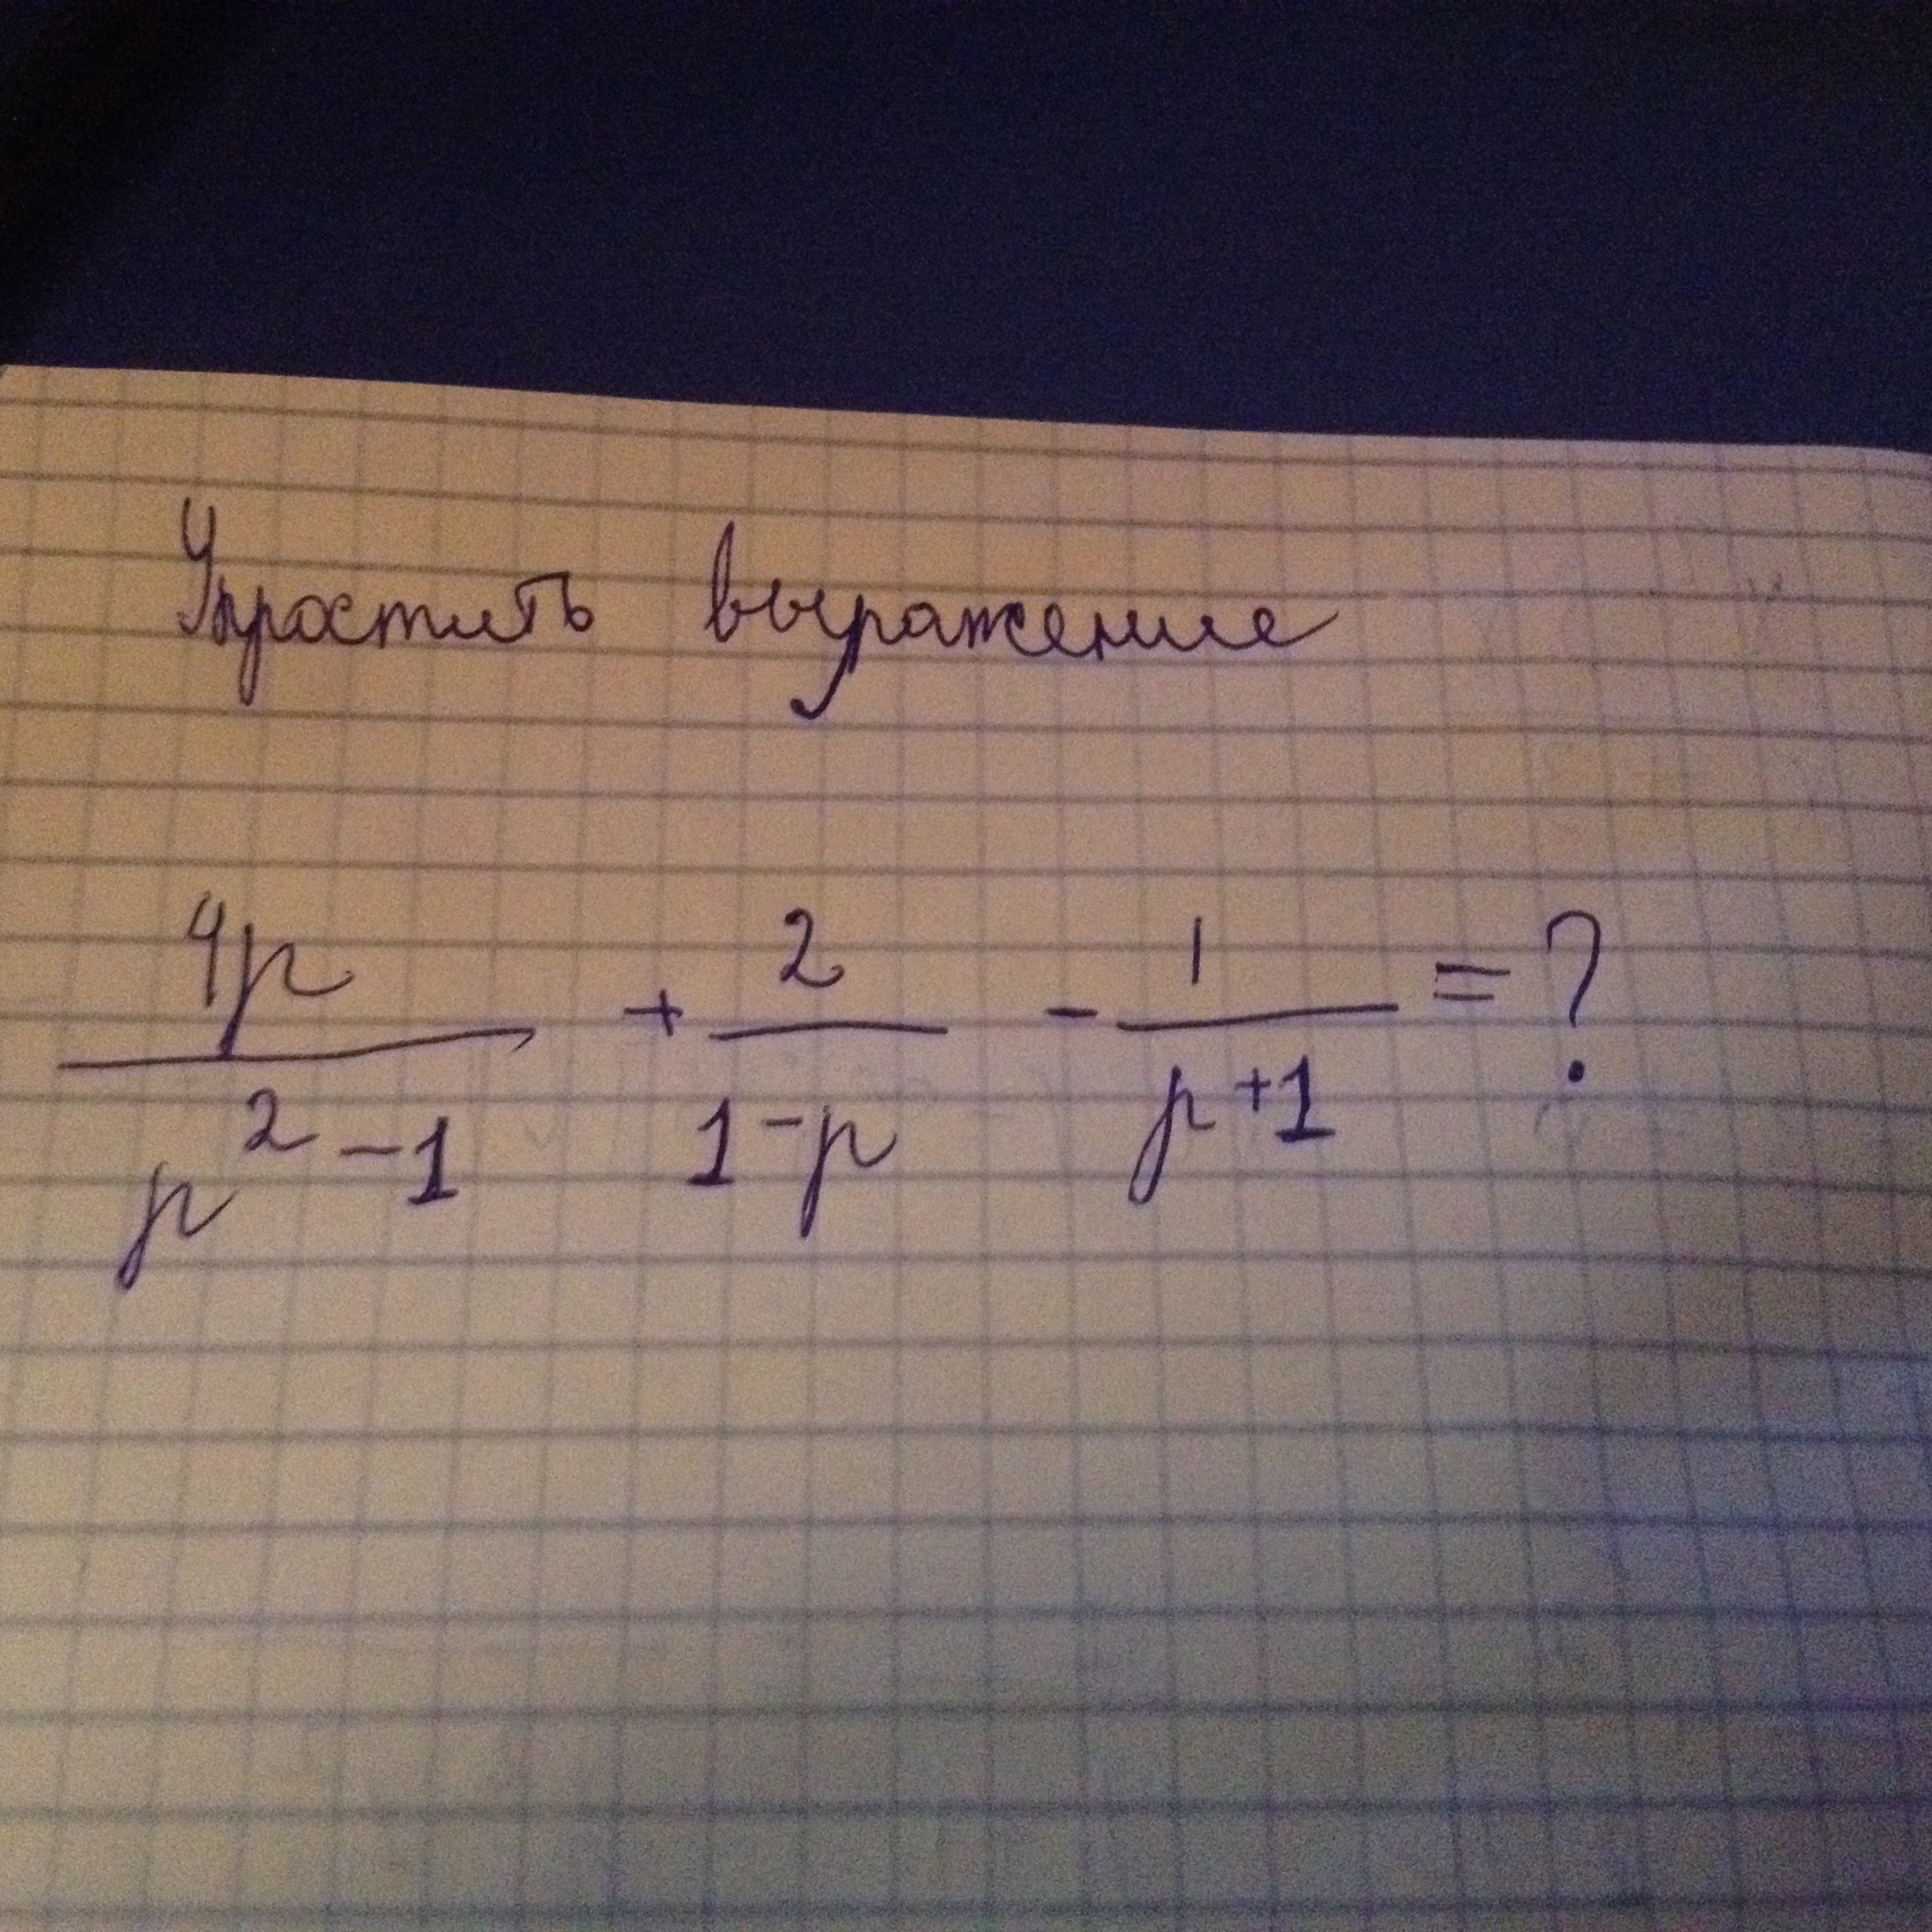 Упростить выражение
4p/(p²-1) + 2/(1-p) - 1/(p+1) = ?